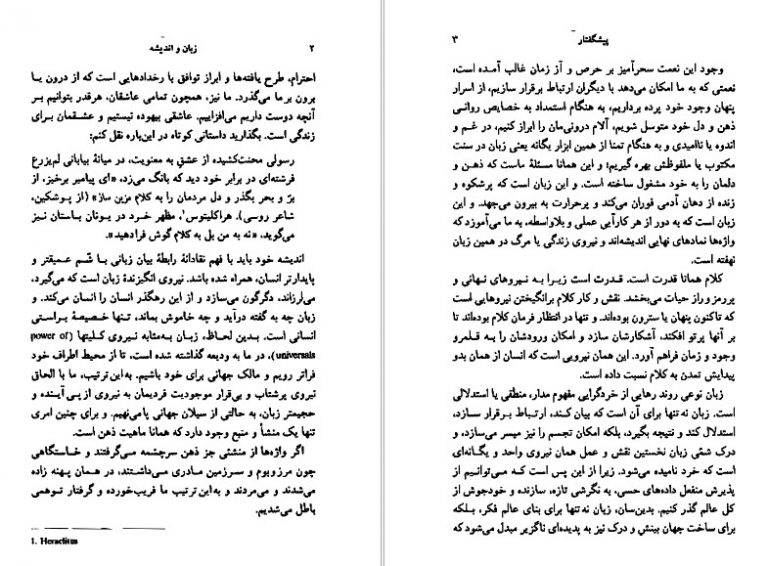 زبان و اندیشه ۲
احترام، طرح یافته‌ها و ابراز توافق یا رخدادهایی است که از درون یا
برون بر ما می‌گذرد. ما نیز، همچون تمامی عاشقان، هرقدر بتوانیم بر
آنچه دوست داریم می‌افزاییم. عاشقی بیهوده نیستیم و عشقمان برای
زندگی است. بگذارید داستانی کوتاه در این‌باره نقل کنم:
رسولی محنت‌کشیده از عشق به معنویت، در میانهٔ بیابانی لم‌یزرع
فرشته‌ای در برابر خود دید که بانگ می‌زد، «ای پیامبر برخیز، از
برّ و بحر بگذر و دل مردمان را به کلام مزین ساز» (از پوشکین،
شاعر روسی). هراکلیتوس۱، مظهر خرد در یونان باستان نیز
می‌گوید، «نه به من بل به کلام گوش فرادهید».
اندیشه خود باید با فهم نقادانهٔ رابطهٔ بیان زبانی با شمّ عمیقتر و
پایدارتر انسان، همراه شده باشد. نیروی انگیزندهٔ زبان است که می‌گیرد،
می‌لرزاند، دگرگون می‌سازد و از این رهگذر انسان را انسان می‌کند. و
زبان چه به گفته درآید و چه خاموش بماند، تنها خصیصهٔ براستی
انسانی است. بدین لحاظ، زبان به‌مثابه نیروی کلیتها (power of
universals)، در ما به ودیعه گذاشته شده است. تا از محیط اطراف خود
فراتر رویم و مالک جهانی برای خود باشیم. به‌این‌ترتیب، ما با الحاق
نیروی پرشتاب و بی‌قرار موجودیت فردیمان به نیروی از پی آینده و
حجیمتر زبان، به حالتی از سیلان جهانی پا می‌نهیم. و برای چنین امری
تنها یک منشأ و منبع وجود دارد که همانا ماهیت ذهن است.
اگر واژه‌ها از منشئی جز ذهن سرچشمه می‌گرفتند و خاستگاهی
چون مرزوبوم و سرزمین مادری می‌داشتند، در همان پهنه زاده
می‌شدند و می‌مردند و به‌این‌ترتیب ما فریب‌خورده و گرفتار توهمی
باطل می‌شدیم.
1. Heraclitus
پیشگفتار ۳
وجود این نعمت سحرآمیز بر حرص و آز زمان غالب آمده است،
نعمتی که به ما امکان می‌دهد با دیگران ارتباط برقرار سازیم، از اسرار
پنهان وجود خود پرده برداریم، به هنگام استمداد به خصایص روانی
ذهن و دل خود متوسل شویم، آلام درونی‌مان را ابراز کنیم، در غم و
اندوه یا ناامیدی و به هنگام تمنا از همین ابزار یگانه یعنی زبان در سنت
مکتوب یا ملفوظش بهره گیریم؛ و این همانا مسئلهٔ ماست که ذهن و
دلمان را به خود مشغول ساخته است. و این زبان است که پرشکوه و
زنده از دهان آدمی فوران می‌کند و پرحرارت به بیرون می‌جهد. و این
زبان است که به دور از هر کارآیی عملی و بلاواسطه، به ما می‌آموزد که
واژه‌ها نمادهای نهایی اندیشه‌اند و نیروی زندگی یا مرگ در همین زبان
نهفته است.
کلام همانا قدرت است. قدرت است زیرا به نیروهای نهانی و
پررمز و راز حیات می‌بخشد. نقش و کار کلام برانگیختن نیروهایی است
که تاکنون پنهان یا سترون بوده‌اند. و تنها در انتظار فرمان کلام بوده‌اند تا
بر آنها پرتو افکند، آشکارشان سازد و امکان ورودشان را به قلمرو
وجود و زمان فراهم آورد. این همان نیرویی است که انسان از همان بدو
پیدایش تمدن به کلام نسبت داده است.
زبان نوعی روند رهایی از خردگرایی مفهوم مدار، منطقی یا استدلالی
است. زبان نه تنها برای آن است که بیان کند، ارتباط برقرار سازد،
استدلال کند و نتیجه بگیرد، بلکه امکان تجسم را نیز میسر می‌سازد، و
درک شمّی زبان نخستین نقش و عمل همان نیروی واحد و یگانه‌ای
است که خرد نامیده می‌شود. زیرا از این پس است که می‌توانیم از
پذیرش منفعل داده‌های حسی، به نگرشی تازه، سازنده و خودجوش از
کل عالم گذر کنیم. بدین‌سان، زبان نه تنها برای بنای عالم فکر، بلکه
برای ساخت جهان بینش و درک نیز به پدیده‌ای ناگزیر مبدل می‌شود که